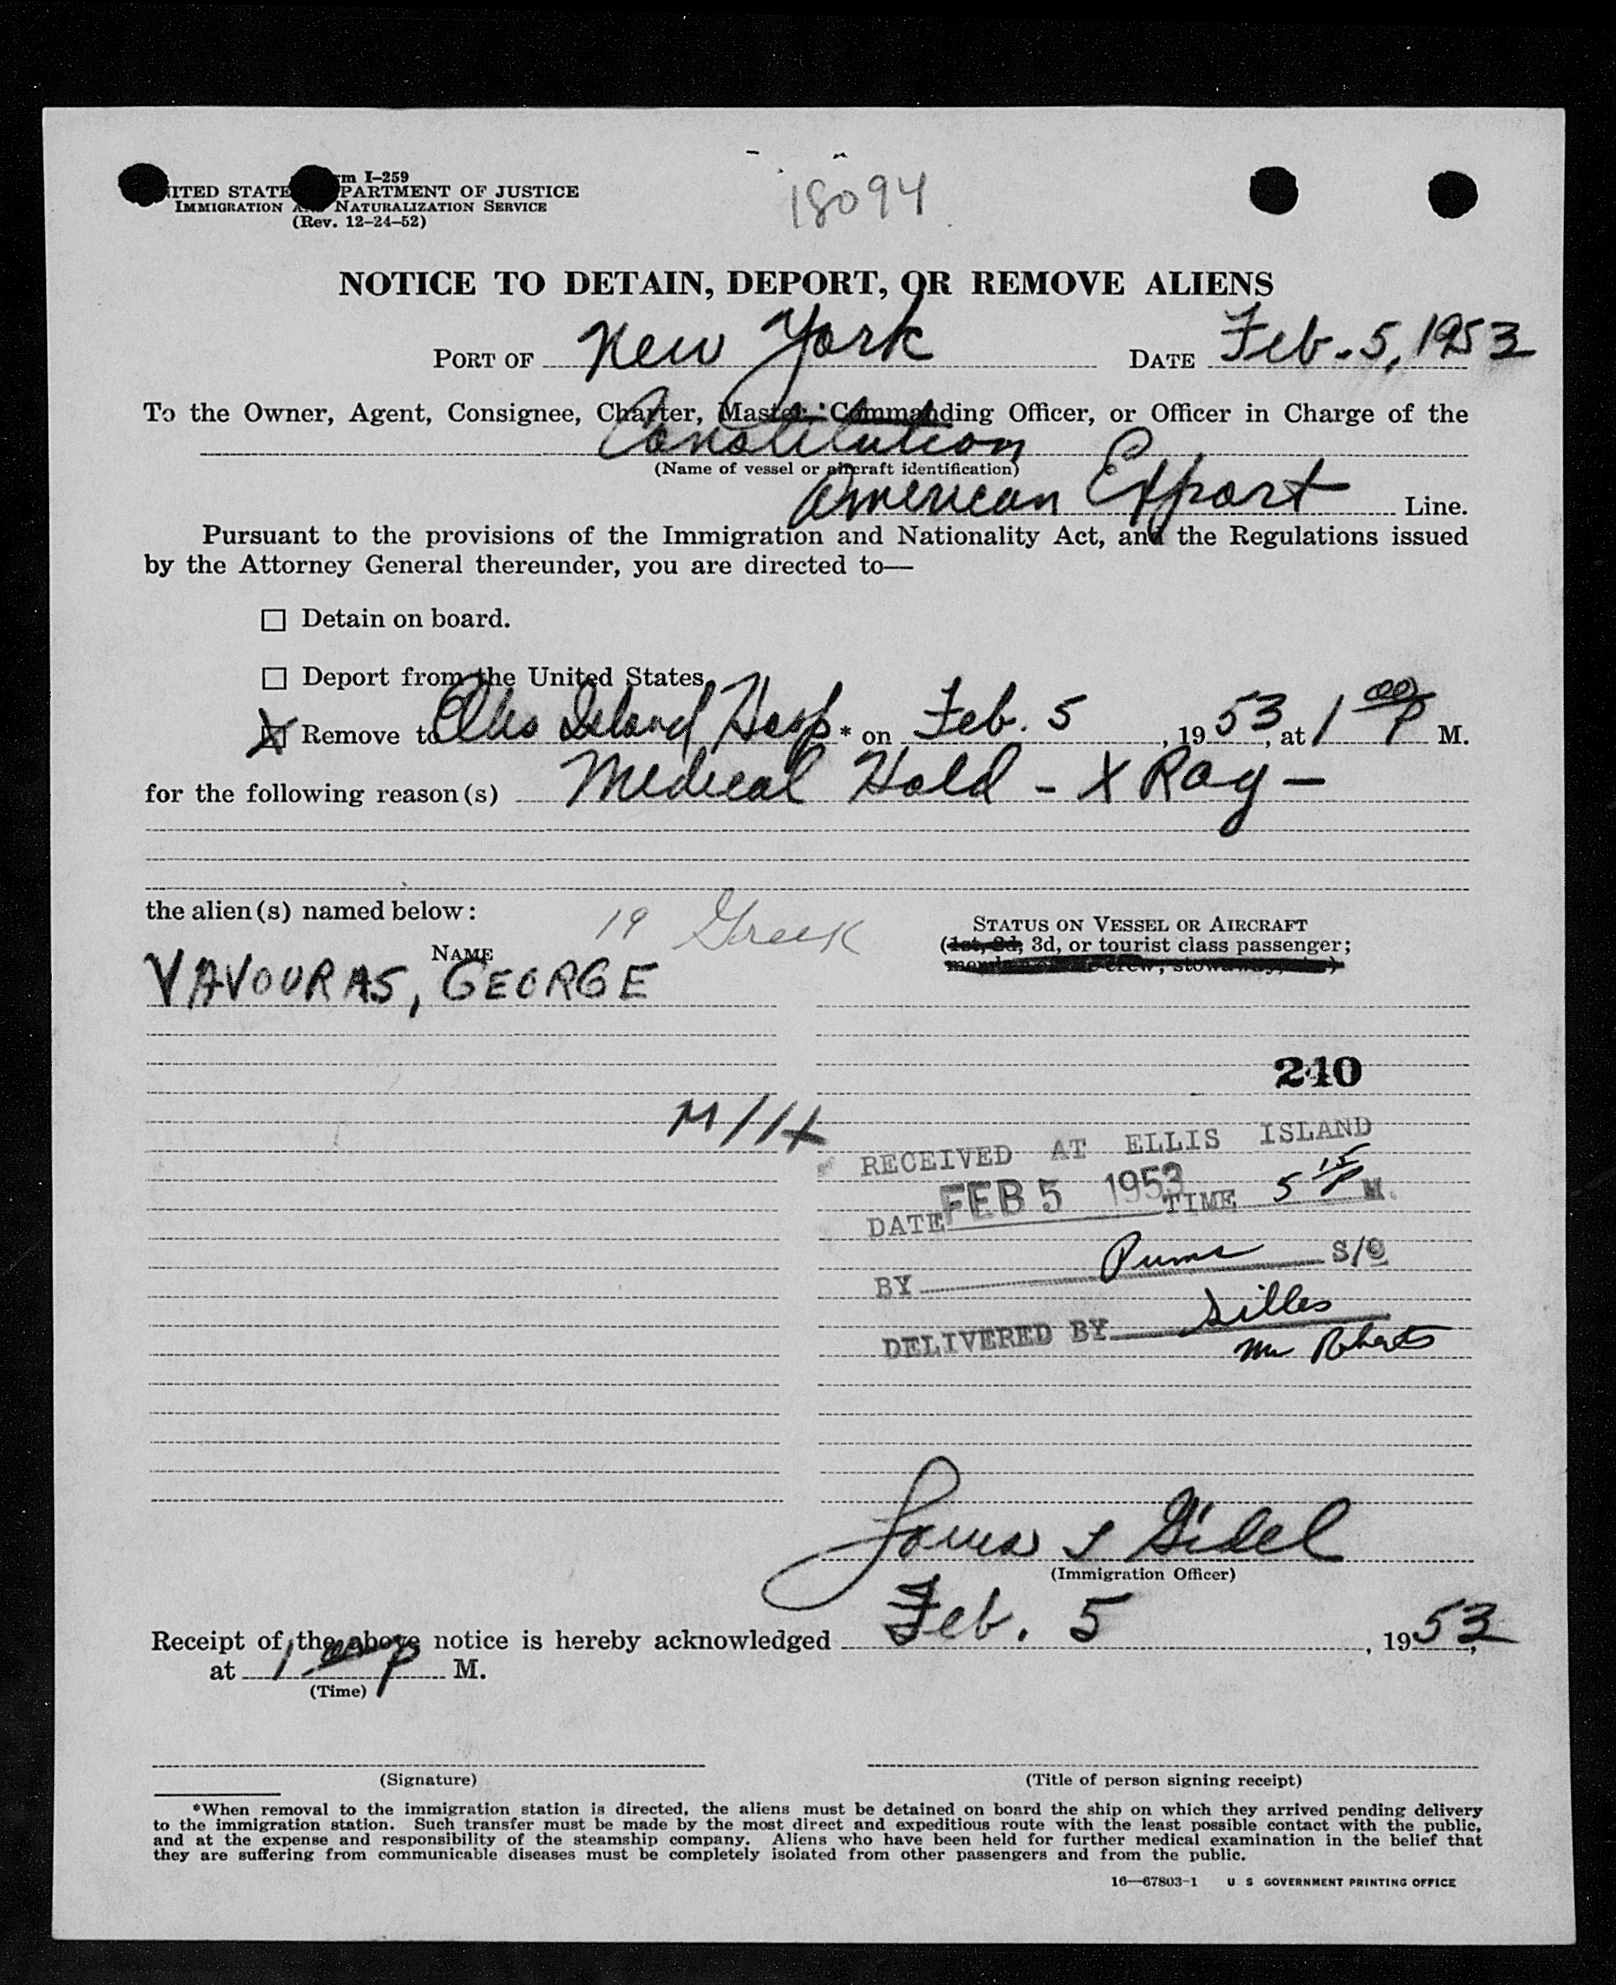 rm I-259
ITED STATE PARTMENT OF JUSTICE
IMMIGRATION NATURALIZATION SERVICE
(Rev. 12-24-52)
18094
NOTICE TO DETAIN, DEPORT, OR REMOVE ALIENS
PORT OF New York DATE Feb. 5, 1953
To the Owner, Agent, Consignee, Charter, Master, Commanding Officer, or Officer in Charge of the
Constitution
(Name of vessel or aircraft identification)
American Export Line.
Pursuant to the provisions of the Immigration and Nationality Act, and the Regulations issued
by the Attorney General thereunder, you are directed to—
☐ Detain on board.
☐ Deport from the United States.
☒ Remove to Ellis Island Hosp * on Feb. 5, 1953, at 1 00 P M.
for the following reason(s) Medical Hold - X Ray -
the alien(s) named below:
19 Greek
STATUS ON VESSEL OR AIRCRAFT
(1st, 2d, 3d, or tourist class passenger;
NAME
VAVOURAS, GEORGE
240
RECEIVED AT ELLIS ISLAND
DATE FEB 5 1953 TIME 5 15 P M.
BY S/O
DELIVERED BY
Mr Roberts
(Immigration Officer)
Receipt of the above notice is hereby acknowledged Feb. 5, 1953,
at 1 00 P M.
(Time)
(Signature)
(Title of person signing receipt)
*When removal to the immigration station is directed, the aliens must be detained on board the ship on which they arrived pending delivery
to the immigration station. Such transfer must be made by the most direct and expeditious route with the least possible contact with the public,
and at the expense and responsibility of the steamship company. Aliens who have been held for further medical examination in the belief that
they are suffering from communicable diseases must be completely isolated from other passengers and from the public.
16—67803-1 U S GOVERNMENT PRINTING OFFICE